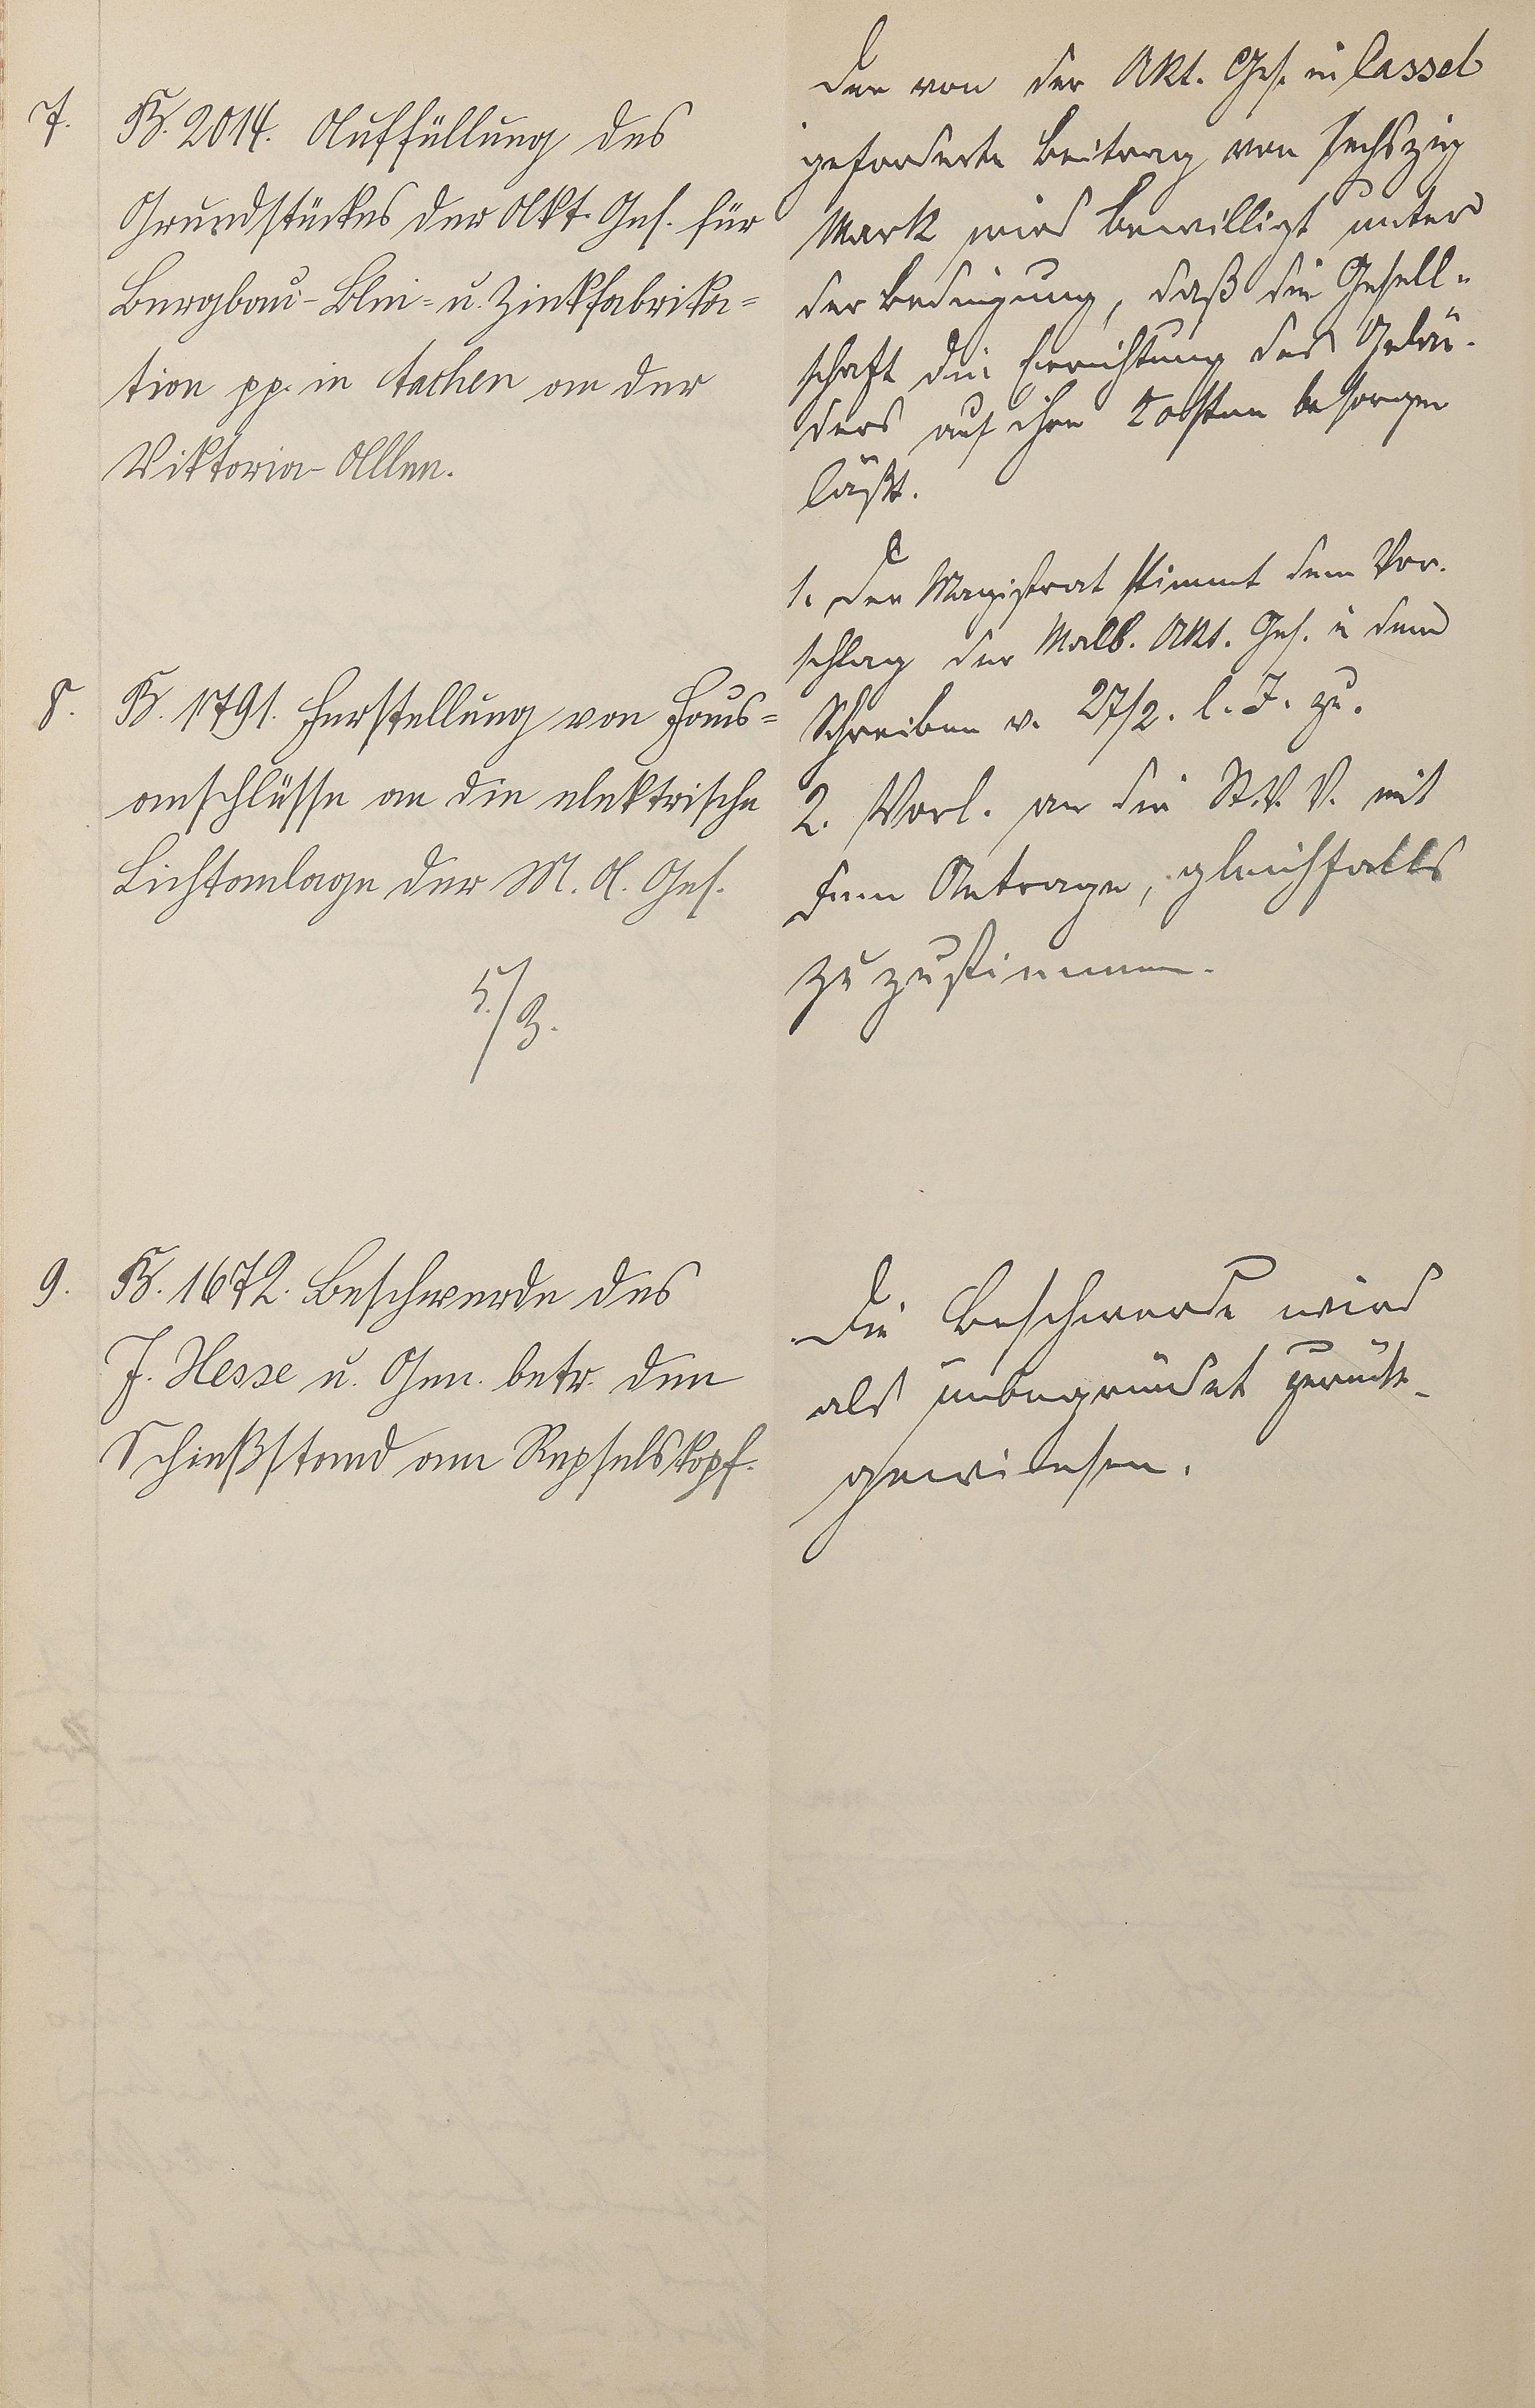 7.
B. 2014. Auffüllung des
Grundstückes der Akt. Ges. für
Bergbau- Blei- u. Zinkfabrika-
tion pp. in Aachen an der
Viktoria-Allee.
Der von der Akt. Ges. in Cassel
geforderte Beitrag von sechszig
Mark wird bewilligt unter
der Bedingung, daß die Gesell-
schaft die Errichtung des Gelän-
ders auf ihre Kosten besorgen
läßt.
8.
B. 1791. Herstellung von Haus-
anschlüsse an die elektrische
Lichtanlage der M. A. Ges.
5./3.
1. Der Magistrat stimmt dem Vor-
schlag der Malb. Akt. Ges. i dem
Schreiben v. 27/2. l. J. zu.
2. Vorl. an die St. V. V. mit
dem Antrage, gleichfalls
zuzustimmen.
9.
B. 1672. Beschwerde des
J. Hesse u. Gen. betr. den
Schießstand am
Die Beschwerde wird
als unbegründet zurück-
gewiesen.